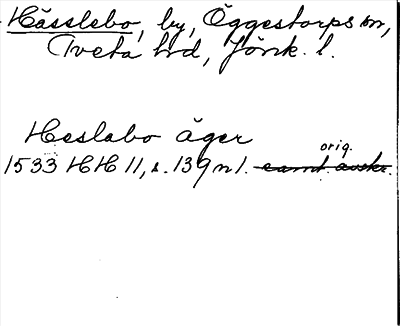 Hässlebo, by, Öggestorps sn,
Tveta hd, Jönk. l.
Heslabo äger
orig.
1533 HH 11, s. 139 n 1. samt. avskr.